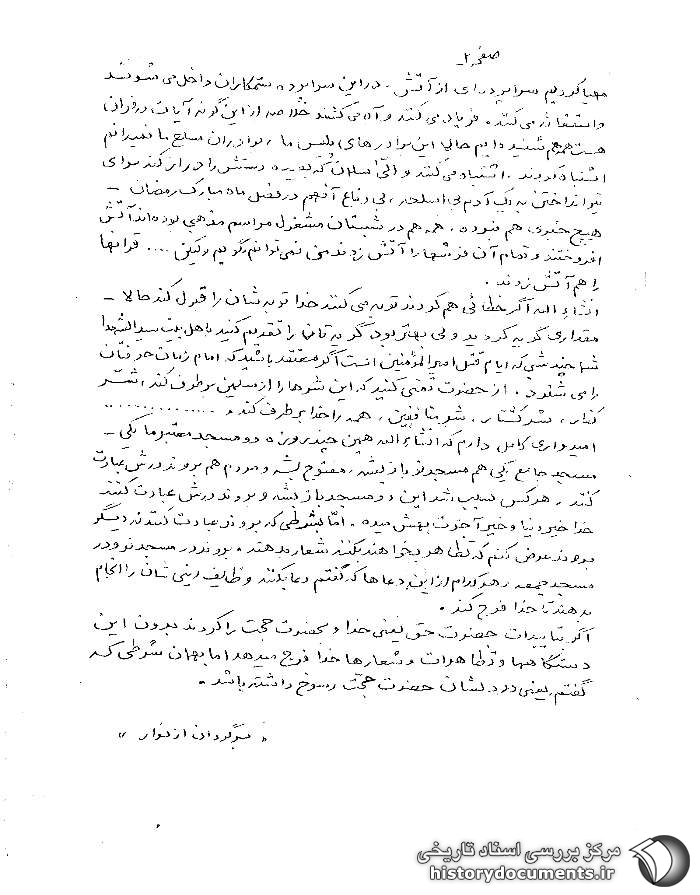 صفحه ۲
مهیا کردیم سراپرده‌ای از آتش . در این سراپرده ستمکاران داخل می شوند
و استغاثه می کنند . فریاد می کنند و آه می کشند خلاصه از این گونه آیات در قرآن
هست همه شنیده ایم حالا این برادرهای پلیس ما ، برادران مسلح ما نمیدانم
اشتباه کردند . اشتباه می کنند و الّا مسلمان که نمیره دستش را دراز کند برای
تیر انداختن به یک آدم بی اسلحه ، بی دفاع آنهم در فصل ماه مبارک رمضان –
هیچ خبری هم نبوده ، همه هم در شبستان مشغول مراسم مذهبی بوده اند آتش
افروختند و تمام آن فرشها را آتش زدند من نمی توانم بگویم ولیکن .... قرآنها
را هم آتش زدند .
انشاء اله اگر خطائی هم کردند توبه می کنند خدا توبه شان را قبول کند حالا –
مقداری گریه کردید ولی بهتر بود گریه تان را تقدیم کنید باهل بیت سیدالشهدا
شما چند شبی که ایام قتل امیرالمؤمنین است اگر معتقد باشید که امام زمان حرفتان
را می شنود . از حضرت تمنی کنید که این شرها را از مسلمین برطرف کند ، شر
کفار ، شر کشتار ، شر منافقین ، همه را خدا برطرف کند و ................
امیدواری کامل دارم که انشاء اله همین چند روزه دو مسجد معتبر ما یکی –
مسجد جامع یکی هم مسجد نو باز بشه ، مفتوح بشه و مردم هم بروند درش عبادت
کنند ، هر کس سبب شد این دو مسجد باز بشه و بروند درش عبادت کنند
خدا خیر دنیا و خیر آخرت بهش میده . امّا بشرطی که بروند عبادت کنند نه دیگر
بروند عرض کنم که تظاهر بخواهند بکنند شعار بدهند . بروند در مسجد نو و در
مسجد جمعه ، هر کدام از این دعاها که گفتم دعا بکنند وظایف دینی شان را انجام
بدهند تا خدا فرج کند .
اگر تأییدات حضرت حق یعنی خدا و حضرت حجت را کردند بدون این
دستگاهها و تظاهرات و شعارها خدا فرج میدهد اما بهمان شرطی که
گفتم یعنی در دلشان حضرت حجت رسوخ داشته باشد .
« برگردان از نوار »
مرکز بررسی اسناد تاریخی
historydocuments.ir